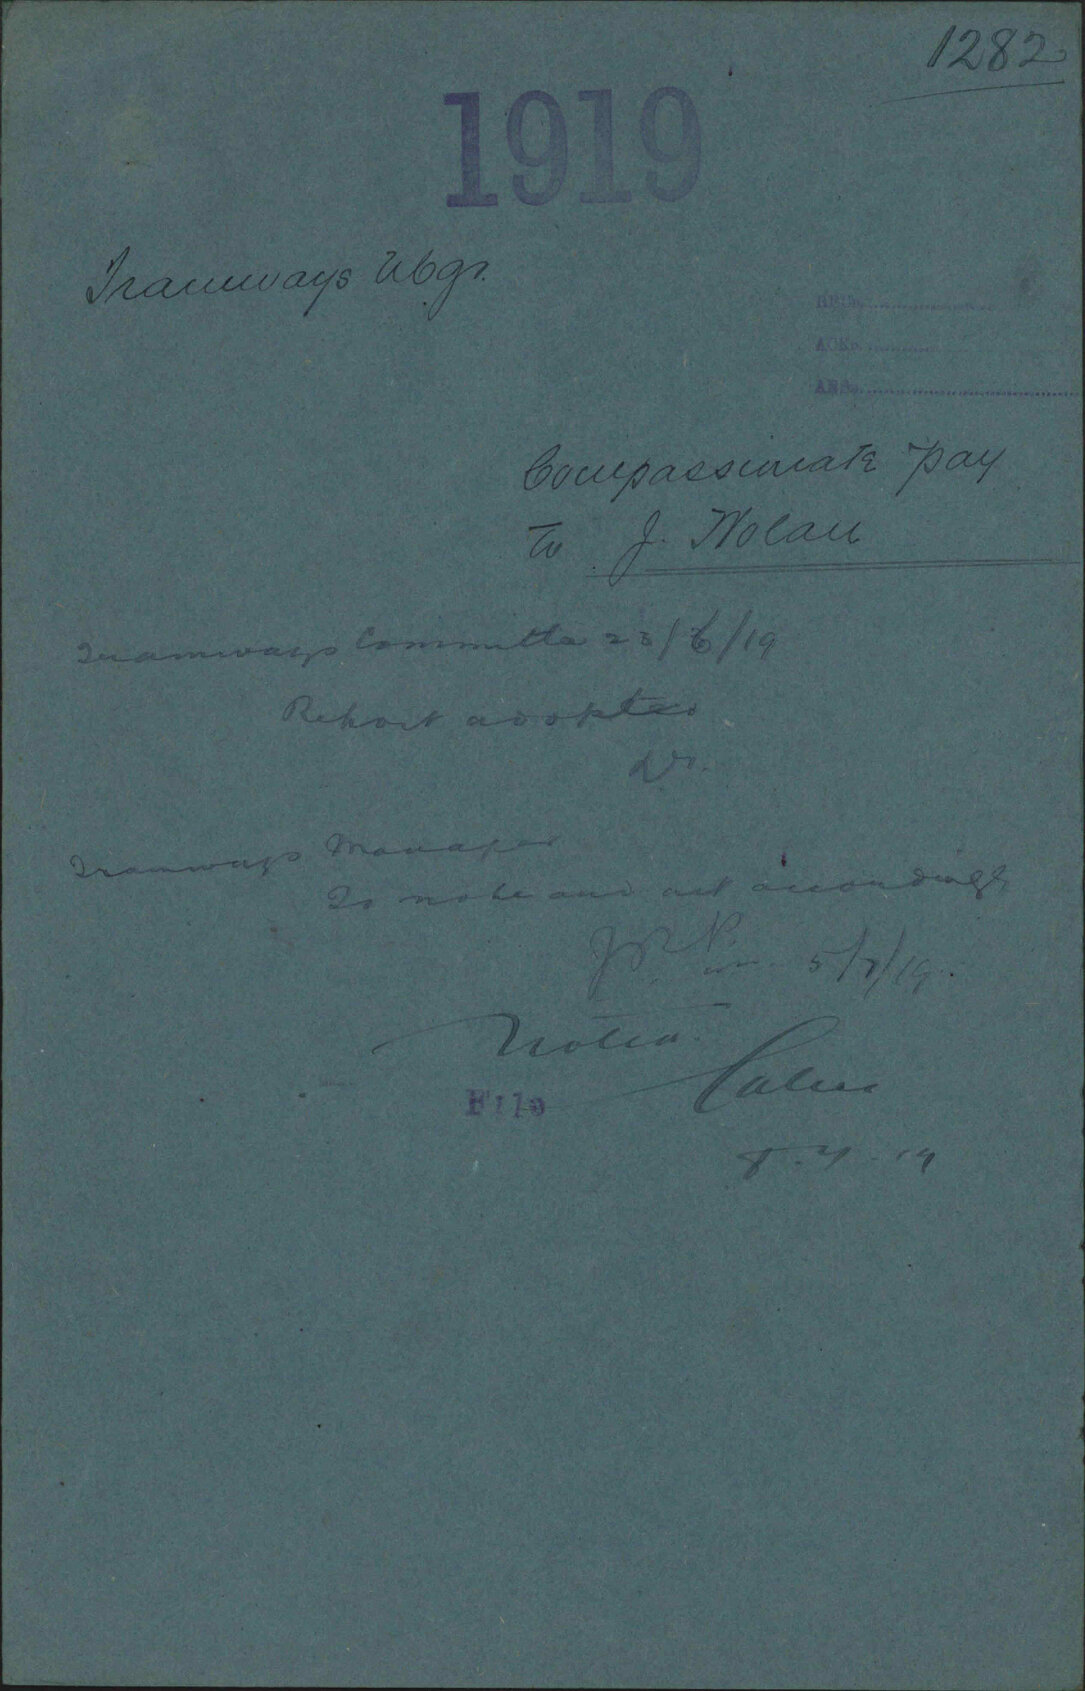 1282
1919
Tramways Mgr.
REC.
ACK.
ANS.
Compassionate Pay
To J. Nolan
Tramways Committee 23/6/19
Report adopted
Tramways Manager
To note and act accordingly
5/7/19.
Noted.
File
8.7.19